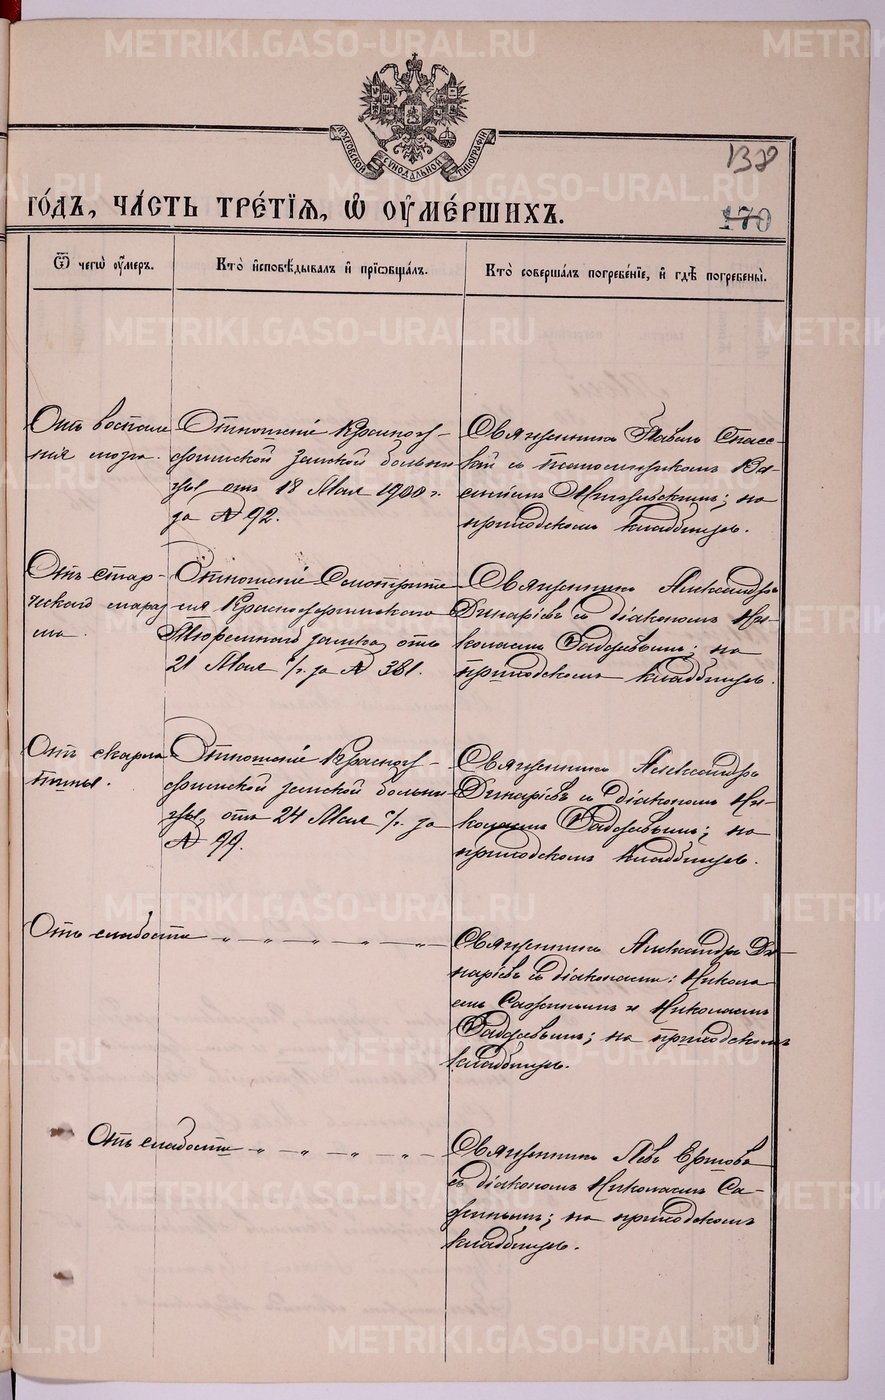 МОСКОВСКОЙ СѴНОДАЛЬНОЙ ТИПОГРАФІИ
138
170
ГО́ДЪ, ЧА́СТЬ ТРЕ́ТІѦ, Ѡ ОУМЕ́РШИХЪ.
Ѿ чегѡ̀ оу́меръ.
Кто̀ и҆сповѣ́дывалъ и҆ прїѡбща́лъ.
Кто̀ соверша́лъ погребе́нїе, и҆ гдѣ̀ погребены̀.
Отъ воспале
нія мозга.
Отношеніе Красноу-
фимской земской больни
цы отъ 18 Мая 1900 г.
за № 92.
Священникъ Павелъ Спасс-
кій съ псаломщикомъ Ва
силіемъ; на
приходскомъ кладбищѣ.
Отъ стар-
ческаго мараз
ма.
Отношеніе Смотрите
ля Красноуфимскаго
Тюремнаго замка, отъ
21 Мая с/г. за № 381.
Священникъ Александръ
Динаріевъ съ діакономъ Ни-
колаемъ; на
приходскомъ кладбищѣ.
Отъ скарла
тины.
Отношеніе Красноу-
фимской земской больни
цы, отъ 24 Мая с/г. за
№ 99.
Священникъ Александръ
Динаріевъ съ діакономъ Ни-
колаемъ; на
приходскомъ кладбищѣ.
Отъ слабости — „ — „ — „ — „ — „ —
Священникъ Александръ Ди-
наріевъ съ діаконами: Никола
емъ и Николаемъ
; на приходскомъ
кладбищѣ.
Отъ слабости — „ — „ — „ — „ —
Священникъ Левъ Ершовъ
съ діакономъ Николаемъ Са-
; на приходскомъ
кладбищѣ.
METRIKI.GASO-URAL.RU